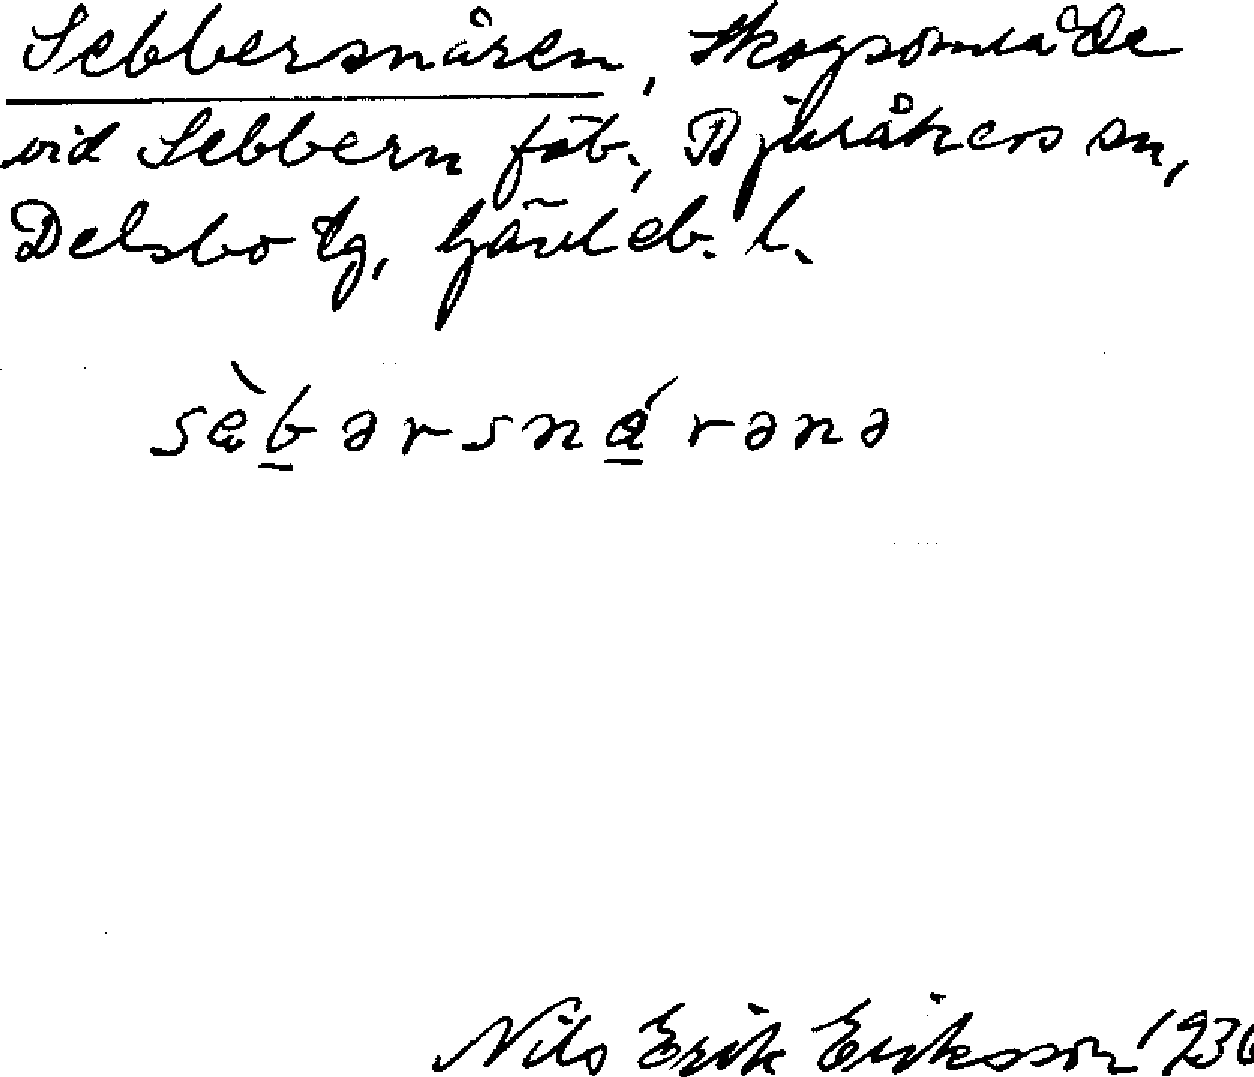 Sebbersnåren, skogsområde
vid Sebbern fäb., Bjuråkers sn,
Delsbo tg, Gävleb. l.
sèb̲ərsná̲rənə
Nils Erik Eriksson